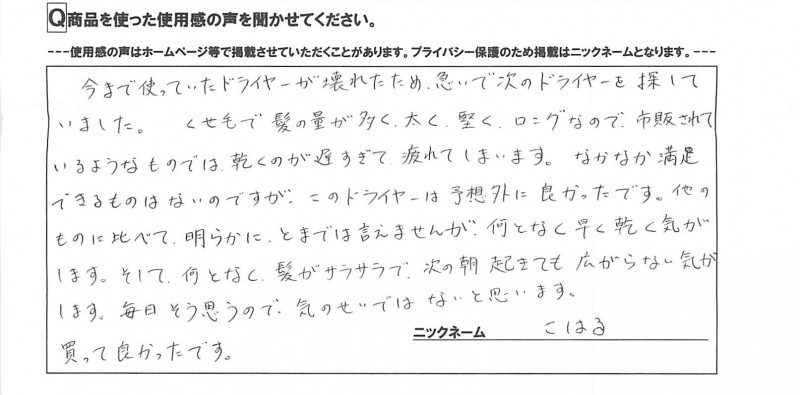 Q商品を使った使用感の声を聞かせてください。
---使用感の声はホームページ等で掲載させていただくことがあります。プライバシー保護のため掲載はニックネームとなります。---
今まで使っていたドライヤーが壊れたため、急いで次のドライヤーを探して
いました。 くせ毛で髪の量が多く、太く、堅く、ロングなので、市販されて
いるようなものでは、乾くのが遅すぎて、疲れてしまいます。 なかなか満足
できるものはないのですが、このドライヤーは予想外に良かったです。他の
ものに比べて、明らかに、とまでは言えませんが、何となく早く乾く気が
します。そして、何となく、髪がサラサラで、次の朝起きても広がらない気が
します。毎日そう思うので、気のせいではないと思います。
ニックネーム こはる
買って良かったです。